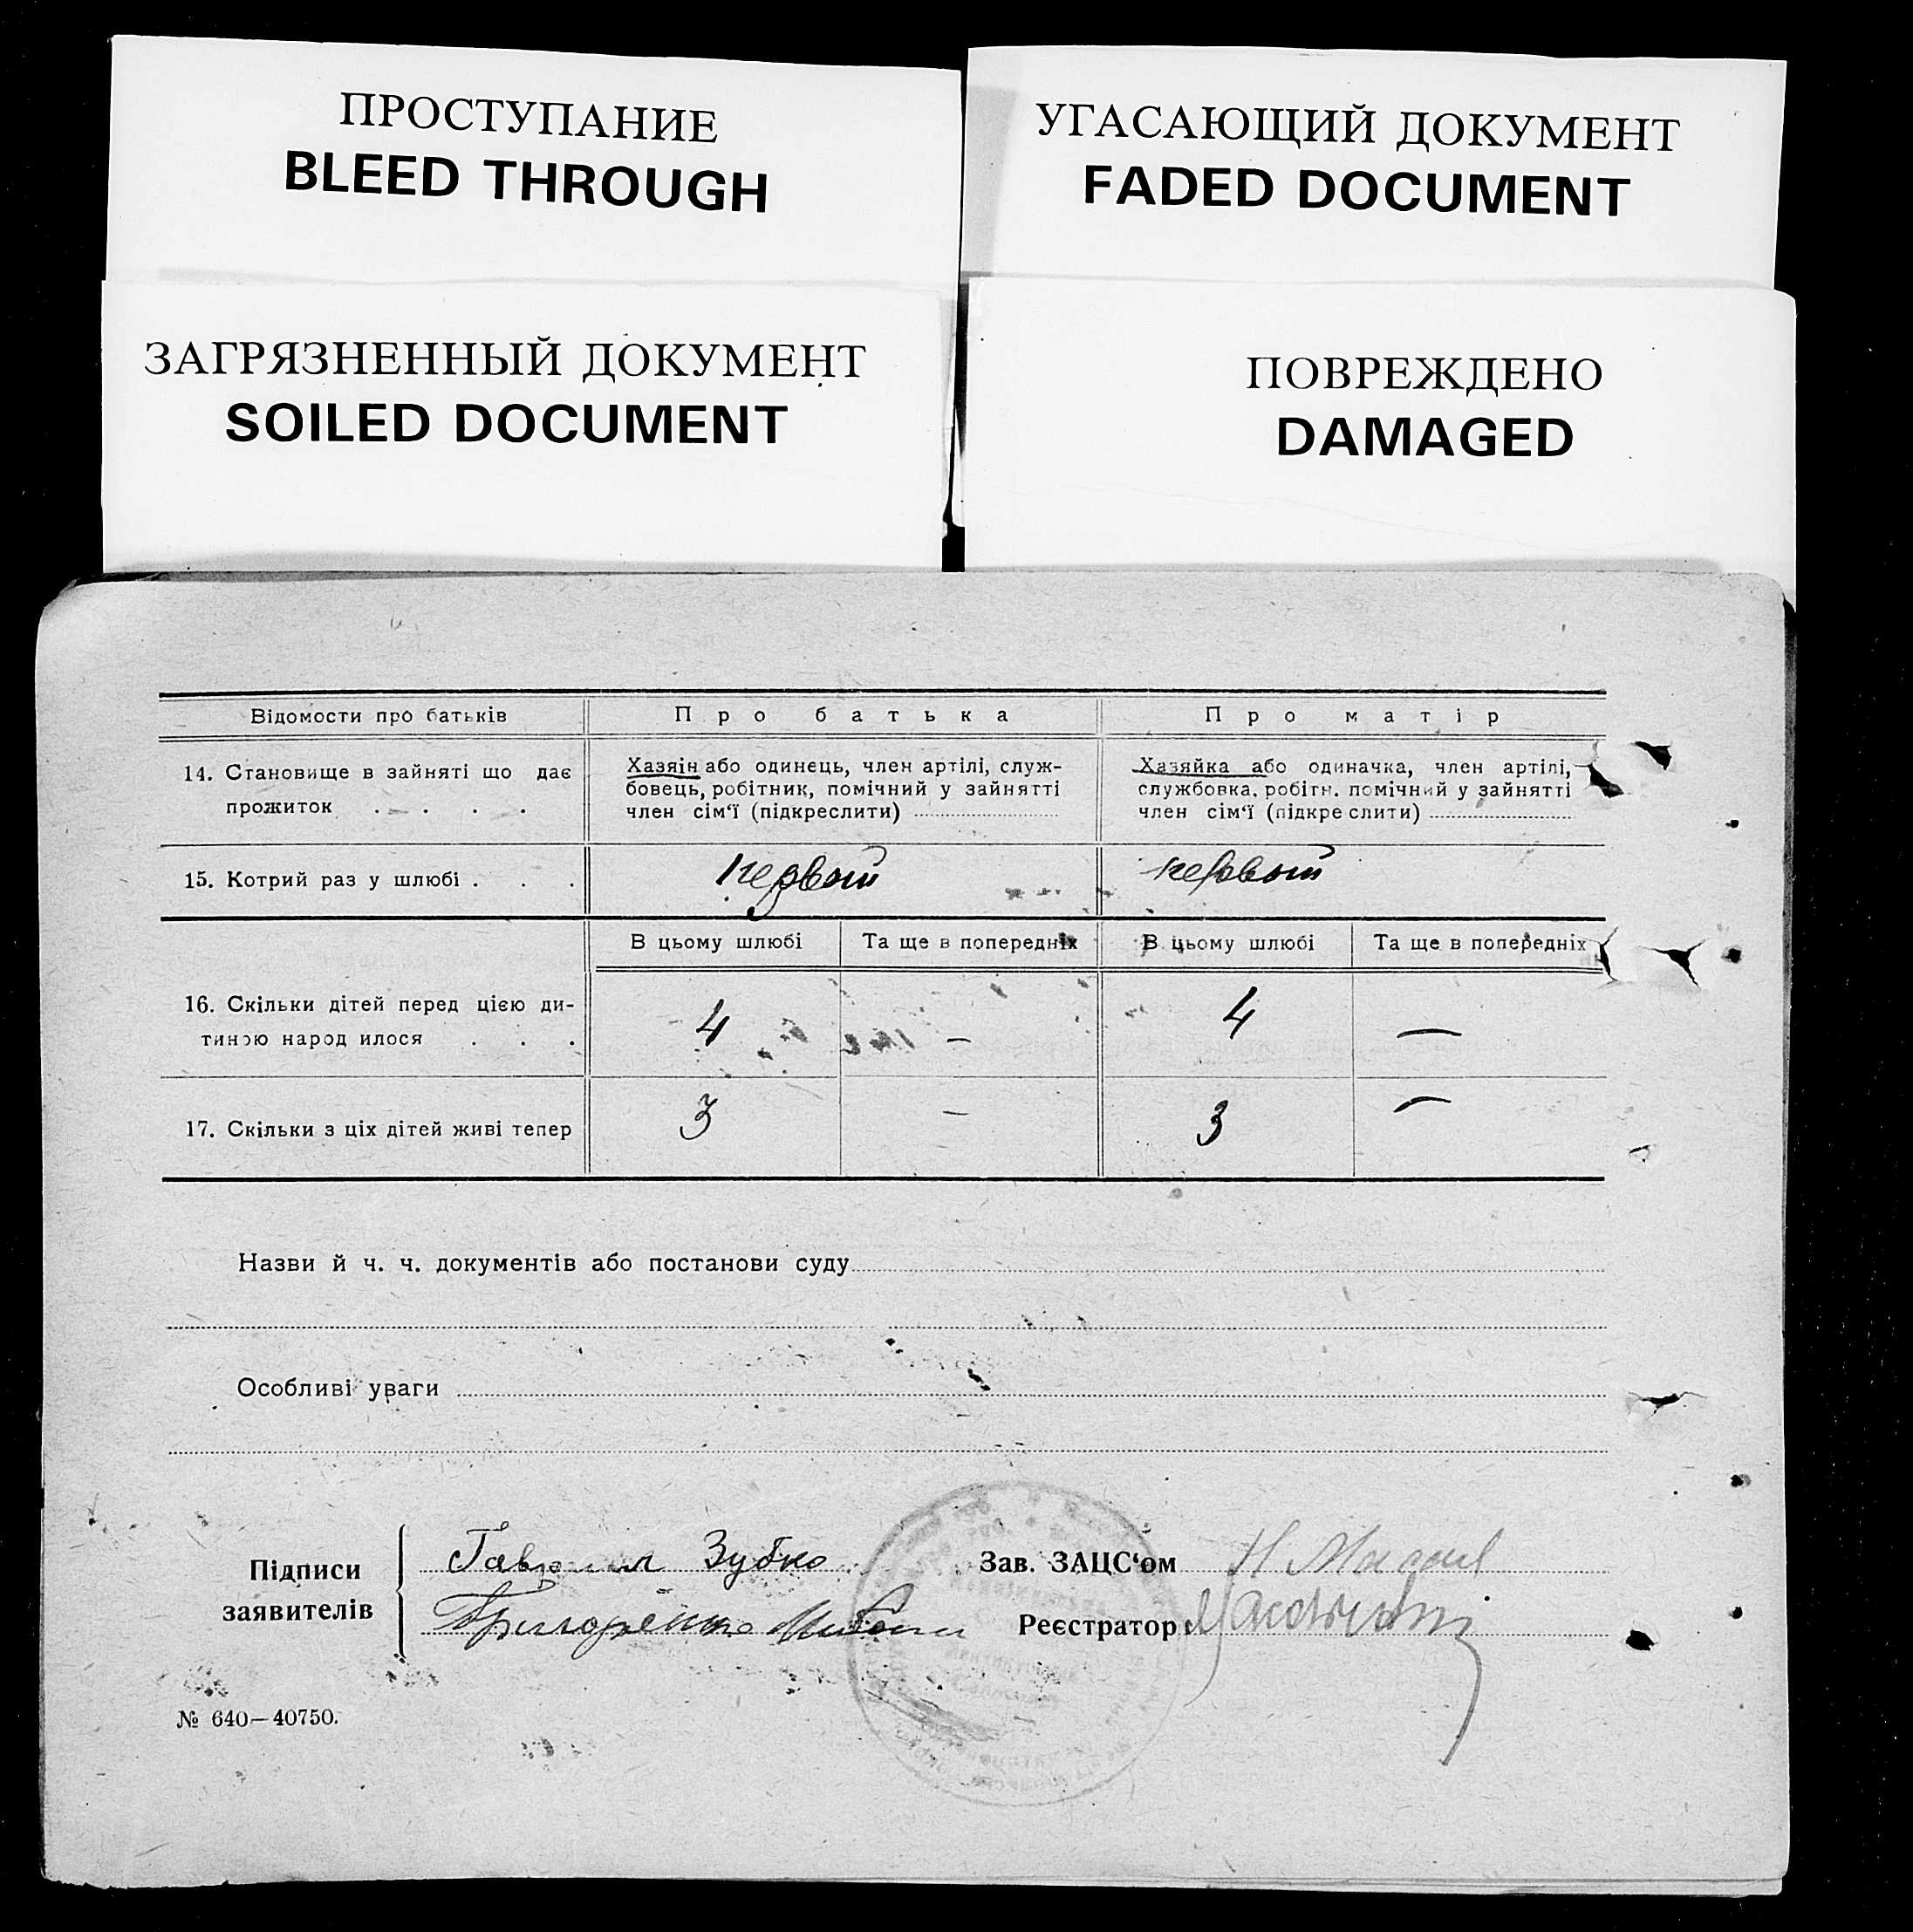 ПРОСТУПАНИЕ
BLEED THROUGH
УГАСАЮЩИЙ ДОКУМЕНТ
FADED DOCUMENT
ЗАГРЯЗНЕННЫЙ ДОКУМЕНТ
SOILED DOCUMENT
ПОВРЕЖДЕНО
DAMAGED
Відомости про батьків
Про батька
Про матір
14. Становище в зайняті що дає
прожиток . . . .
Хазяін або одинець, член артілі, служ-
бовець, робітник, помічний у зайнятті
член сім‘ї (підкреслити)
Хазяйка або одиначка, член артілі,
службовка, робітн. помічний у зайнятті
член сім‘ї (підкре слити)
15. Котрий раз у шлюбі . . .
первый
первый
В цьому шлюбі
Та ще в попередніх
В цьому шлюбі
Та ще в попередніх
16. Скільки дітей перед цією ди-
тиною народ илося . . .
4
—
4
—
17. Скільки з ціх дітей живі тепер
3
—
3
—
Назви й ч. ч. документів або постанови суду
Особливі уваги
Підписи
заявителів
Гавриил Зубко
Григоренко
Зав. ЗАЦС‘ом
Реєстратор
№ 640—40750.